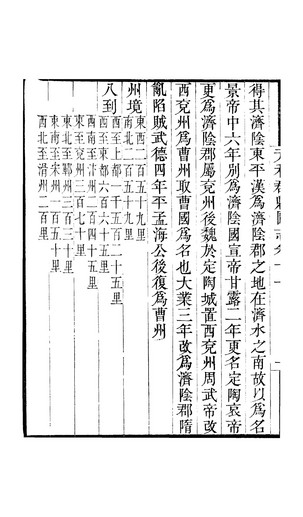 得其濟陰東平漢爲濟陰郡之地在濟水之南故以爲名
景帝中六年別爲濟陰國宣帝甘露二年更名定陶哀帝
更爲濟陰郡屬兗州後魏於定陶城置西兗州周武帝改
西兗州爲曹州取曹國爲名也大業三年改爲濟陰郡隋
亂陷賊武德四年平孟海公後復爲曹州
州境
東西二百五十九里
南北二百五十九里
八到
西至上都一千五百二十五里
西至東都六百六十五里
西南至汴州二百四十五里
東至兗州三百七十里
東北至鄆州三百三十里
東南至宋州一百五十里
西北至滑州二百里